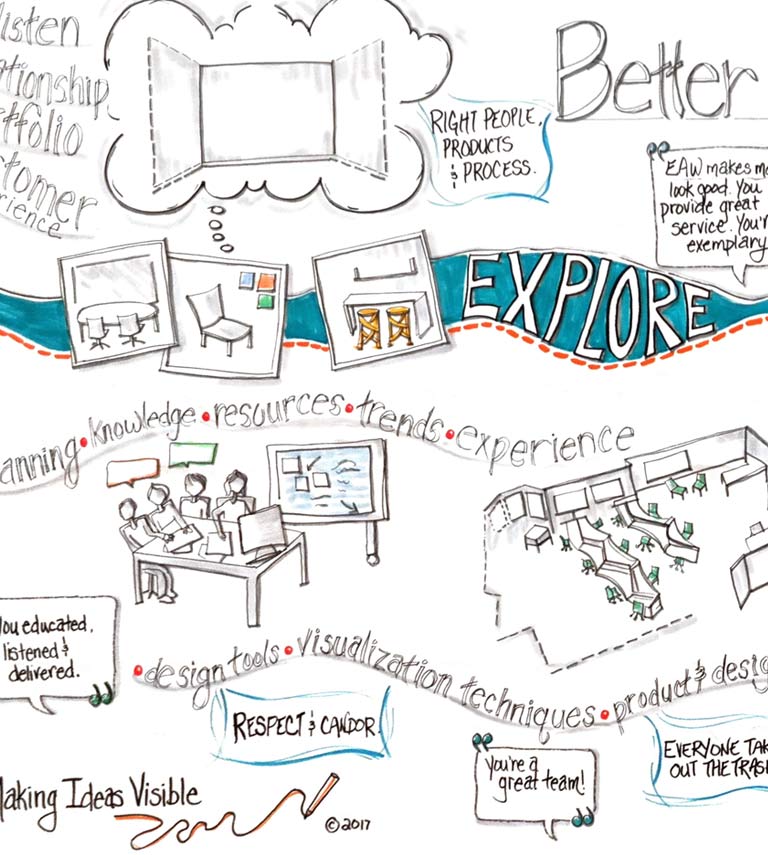 listen
tionship
tfolio
tomer
rience
Better
RIGHT PEOPLE,
PRODUCTS
& PROCESS.
EAW makes me
look good. You
provide great
service. You'r
exemplary
EXPLORE
anning • knowledge • resources • trends • experience
You educated,
listened &
delivered.
• design tools • visualization techniques • product & desig
RESPECT & CANDOR.
You're a
great team!
EVERYONE TAK
OUT THE TRASH
Making Ideas Visible
© 2017